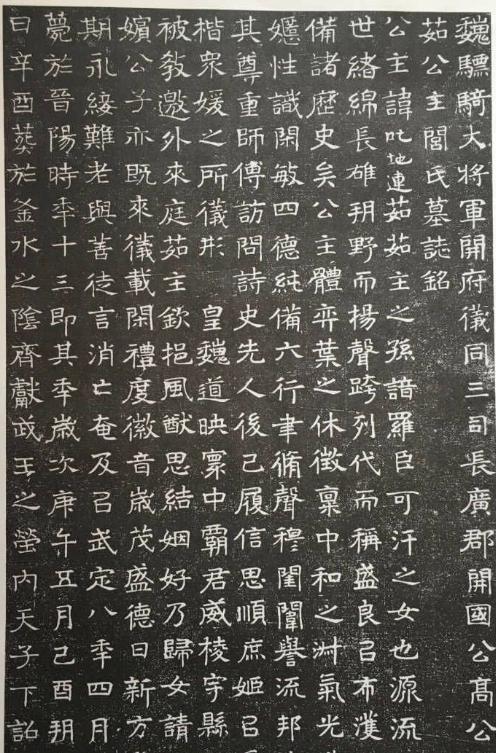 魏驃騎大將軍開府儀同三司長廣郡開國公高公
茹公主閭氏墓誌銘
公主諱叱地連茹茹主之孫諳羅臣可汗之女也源流
世緒綿長雄朔野而楊聲跨列代而稱盛良㠯布濩
備諸歷史矣公主體弈葉之休徵稟中和之淑氣光
嬺性識閑敏四德純備六行聿脩聲穆閨闈譽流邦
其尊重師傅訪問詩史先人後己履信思順庶姬㠯
楷衆媛之所儀形 皇魏道映寰中霸君威棱宇縣
被教邀外來庭茹主欽挹風猷思結姻好乃歸女請
嬪公子亦既來儀載閑禮度徽音歲茂盛德日新方
期永綏難老與善徒言消亡奄及㠯武定八年四月
薨於晉陽時年十三即其年歲次庚午五月己酉朔
日辛酉葬於釜水之陰齊獻武王之塋內天子下詔